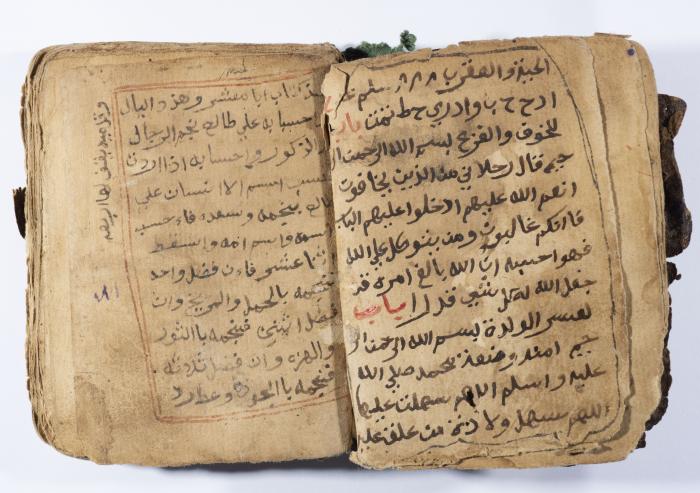 الحية والعقرب يا ٨٨٨ سلم على
ادح ح ب وا دري حط تمت باب
للخوف والفزع بسم الله الرحمن ال
حيم قال رجلان من الذين يخافون
انعم الله عليهم ادخلوا عليهم الباب
فانكم غالبون ومن يتوكل على الله
فهوا حسبه ان الله بالغ امره قد
جعل الله لكل شئ قدرا باب
لعسر الولدة بسم الله الرحمن الر
حيم امنه وضعة محمد صلي الله
عليه واسلم اللهم سهلت عليها
اللهم سهل ولادة من علق عليه
باب ابا معشر وهذا البال
حسبا به على طالع نجم الرجال
الذكور واحسبا به اذا اردت
تحسب اسم الا انسان على
طالع بنجمه وسعده فاء حسب
اسمه واسم امه واسقط
اثنا عشر فاءن فضل واحد
فنجمه بالحمل والمريخ وان
فضل اثنين فنجمه باالثور
والزهره وان فضل ثلاثه
فنجمه باالجوزة وعطارد